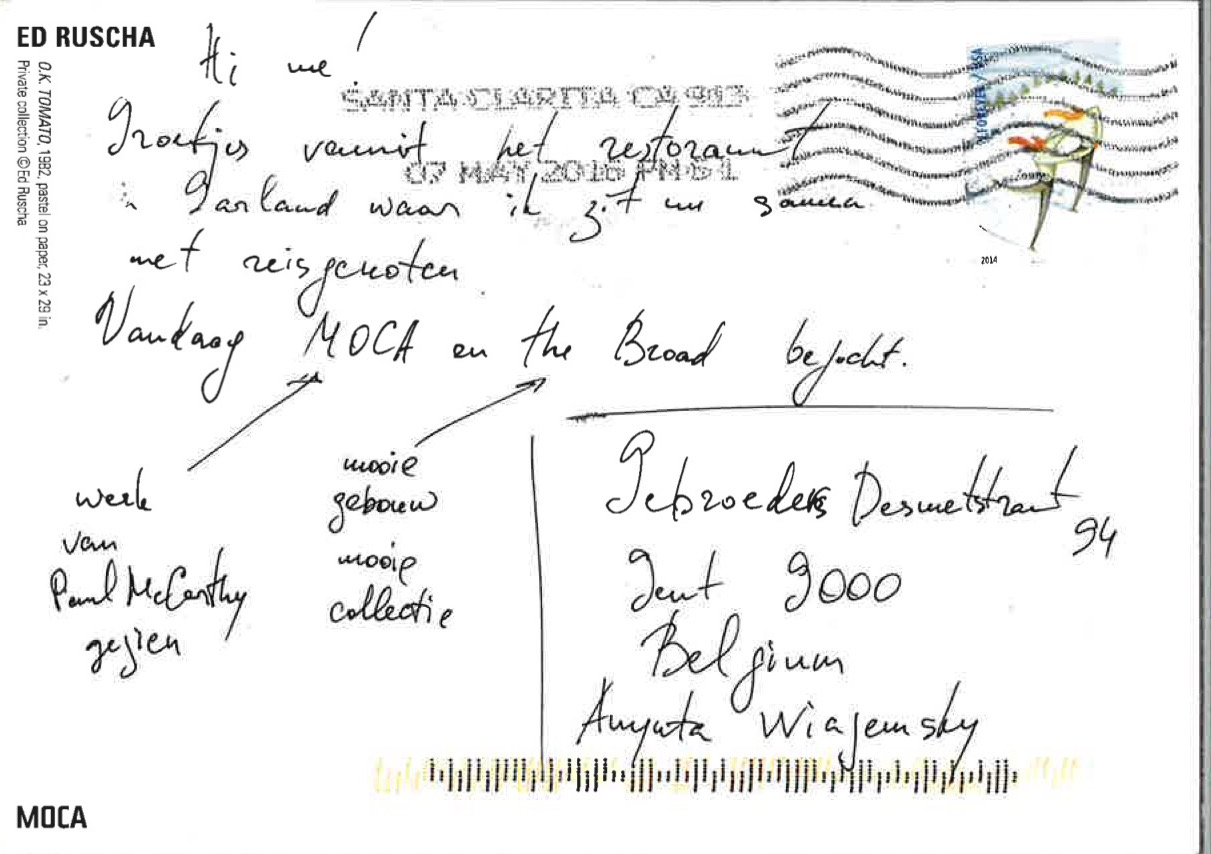 ED RUSCHA
O.K. TOMATO, 1982, pastel on paper, 23 x 29 in.
Private collection © Ed Ruscha
Hi me!
SANTA CLARITA CA 913
07 MAY 2016 PM 5 1
FOREVER / USA
2014
Groetjes vanuit het restoraunt
in Garland waar ik zit nu samen
met reisgenoten
Vandaag MOCA en the Broad bezocht.
werk
van
Paul McCarthy
gezien
mooie
gebouw
mooie
collectie
Gebroeders Desmetstraat
94
Gent 9000
Belgium
Anyuta Wiazemsky
MOCA